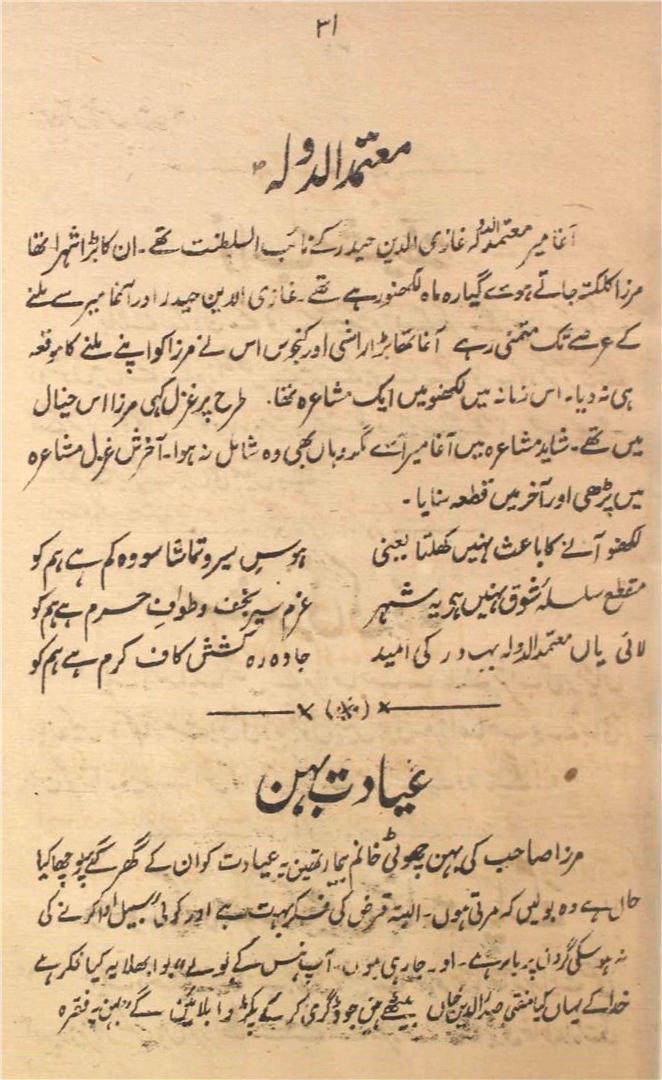 ۳۱
معتمد الدولہ
آغا میر معتمد الدولہ غازی الدین حیدر کے نائب السلطنت تھے۔ ان کا بڑا شہرا تھا
مرزا کلکتہ جاتے ہوئے گیارہ ماہ لکھنؤ رہے تھے۔ غازی الدین حیدر اور آغا میر سے ملنے
کے عرصے تک متمنی رہے آغا تھا بڑا راشی اور کنجوس اس نے مرزا کو اپنے ملنے کا موقعہ
ہی نہ دیا۔ اس زمانہ میں لکھنؤ میں ایک مشاعرہ تھا۔ طرح پر غزل کہی مرزا اس خیال
میں تھے۔ شاید مشاعرہ میں آغا میر آئے مگر وہاں بھی وہ شامل نہ ہوا۔ آخرش غزل مشاعرہ
میں پڑھی اور آخر میں قطعہ سنایا۔
لکھنؤ آنے کا باعث نہیں کھلتا یعنی ہوسِ سیر و تماشا سو وہ کم ہے ہم کو
مقطع سلسلۂ شوق نہیں ہے یہ شہر عزم سیر نجف و طوافِ حرم ہے ہم کو
لائی یاں معتمد الدولہ بہادر کی امید جادہ رہ کشش کاف کرم ہے ہم کو
عیادت بہن
مرزا صاحب کی بہن چھوٹی خانم بیمار تھیں یہ عیادت کو ان کے گھر گئے پوچھا کیا
حال ہے وہ بولیں کہ مرتی ہوں۔ البتہ قرض کی فکر بہت ہے اور کوئی سبیل ادا کرنے کی
نہ ہو سکی گردن پر بار ہے۔ اور جا رہی ہوں۔ آپ ہنس کے بولے "بوا بھلا یہ کیا فکر ہے
خدا کے یہاں کیا مفتی صدر الدین خاں بیٹھے ہیں جو ڈگری کر کے پکڑوا بلائیں گے" بہن یہ فقرہ